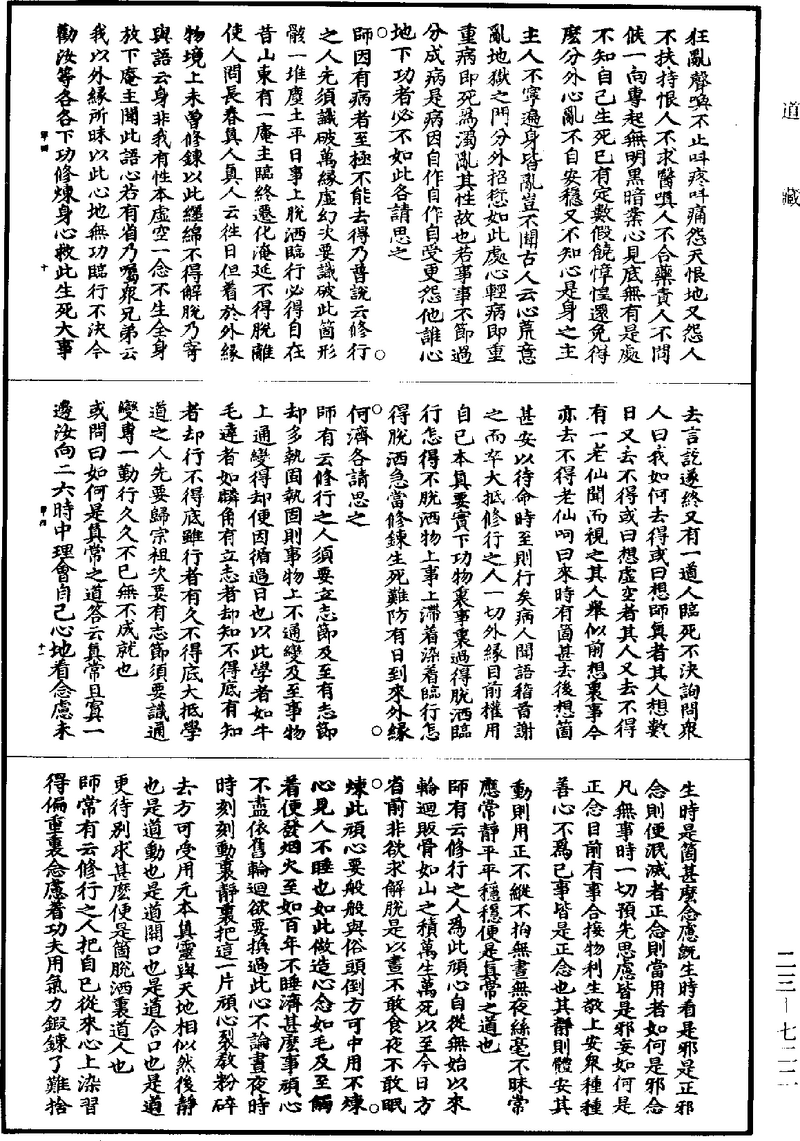 道藏
狂亂聲喚不止呌疼呌痛怨天恨地又怨人
不扶持恨人不求醫嗔人不合藥責人不問
候一向專起無明黑暗業心見底無有是處
不知自己生死已有定數假饒慞惶還免得
麽分外心亂不自安穩又不知心是身之主
主人不寧遍身皆亂豈不聞古人云心荒意
亂地獄之門分外招愆如此處心輕病即重
重病即死爲濁亂其性故也若事事不節過
分成病是病因自作自作自受更怨他誰心
地下功者必不如此各請思之
師因有病者至極不能去得乃普說云修行
之人先須識破萬緣虛幻次要識破此箇形
骸一堆塵土平日事上脫洒臨行必得自在
昔山東有一庵主臨終遷化淹延不得脫離
使人問長春真人真人云往日但着於外緣
物境上未曾修鍊以此纏綿不得解脫乃寄
與語云身非我有性本虛空一念不生全身
放下庵主聞此語心若有省乃囑衆兄弟云
我以外緣所昧以此心地無功臨行不決今
勸汝等各各下功修煉身心救此生死大事
去言說遂終又有一道人臨死不決詢問衆
人曰我如何去得或曰想師真者其人想數
日又去不得或曰想虛空者其人又去不得
有一老仙聞而視之其人舉似前想裏事今
亦去不得老仙呵曰來時有箇甚去後想箇
甚安以待命時至則行矣病人聞語稽首謝
之而卒大抵修行之人一切外緣目前權用
自己本真要實下功物裏事裏過得脫洒臨
行怎得不脫洒物上事上滯着染着臨行怎
得脫洒急當修鍊生死難防有日到來外緣
何濟各請思之
師有云修行之人須要立志節及至有志節
却多執固執固則事物上不通變及至事物
上通變得却便因循過日也以此學者如牛
毛達者如麟角有立志者却知不得底有知
者却行不得底雖行者有久不得底大抵學
道之人先要歸宗祖次要有志節須要識通
變專一勤行久久不已無不成就也
或問曰如何是真常之道答云真常且寘一
邊汝向二六時中理會自己心地看念慮未
生時是箇甚麽念慮旣生時看是邪是正邪
念則便泯滅者正念則當用者如何是邪念
凡無事時一切預先思慮皆是邪妄如何是
正念目前有事合接物利生敬上安衆種種
善心不爲己事皆是正念也其靜則體安其
動則用正不縱不拘無晝無夜絲毫不昧常
應常靜平平穩穩便是真常之道也
師有云修行之人爲此頑心自從無始以來
輪迴販骨如山之積萬生萬死以至今日方
省前非欲求解脫是以晝不敢食夜不敢眠
煉此頑心要般般與俗頭倒方可中用不煉
心見人不睡也如此做造心念如毛及至觸
着便發烟火至如百年不睡濟甚麽事頑心
不盡依舊輪迴欲要換過此心不論晝夜時
時刻刻動裏靜裏把這一片頑心裂敎粉碎
去方可受用元本真靈與天地相似然後靜
也是道動也是道開口也是道合口也是道
更待別求甚麽便是箇脫洒裏道人也
師常有云修行之人把自己從來心上染習
得偏重裏念慮着功夫用氣力鍛鍊了難捨
二三－七二二